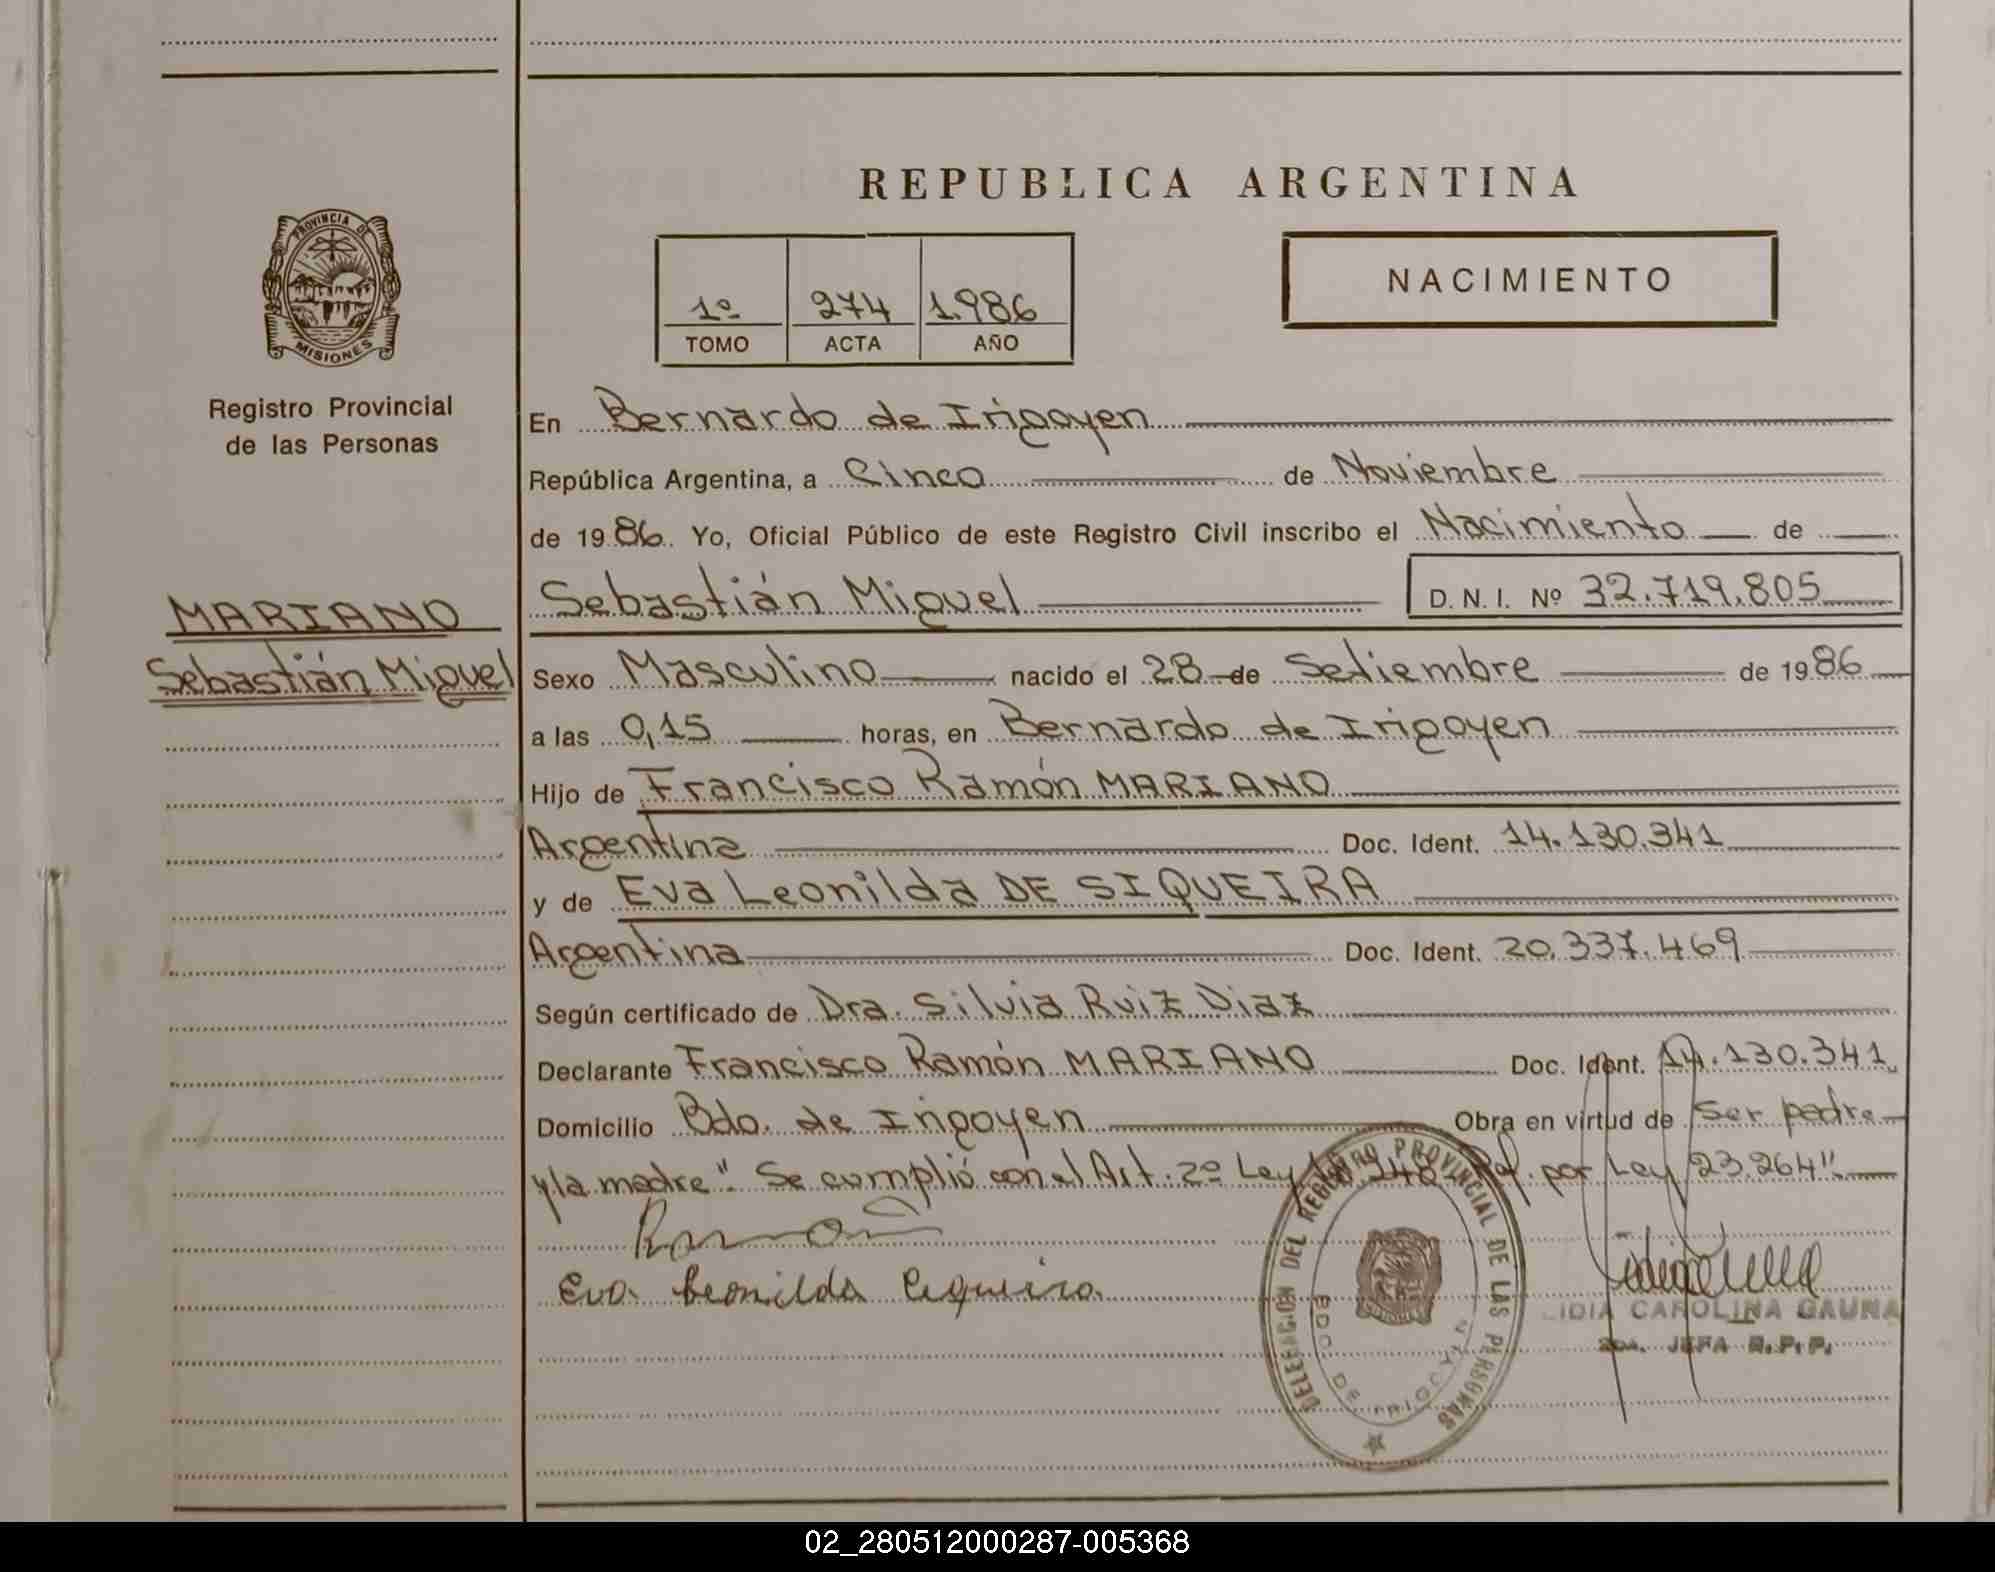 REPUBLICA ARGENTINA
PROVINCIA DE
MISIONES
Registro Provincial
de las Personas
1º 274 1.986
TOMO ACTA AÑO
NACIMIENTO
En Bernardo de Irigoyen
República Argentina, a Cinco de Noviembre
de 1986. Yo, Oficial Público de este Registro Civil inscribo el Nacimiento de
MARIANO
Sebastián Miguel
Sebastián Miguel D. N. I. Nº 32.719.805
Sexo Masculino nacido el 28 de Setiembre de 1986
a las 0,15 horas, en Bernardo de Irigoyen
Hijo de Francisco Ramón MARIANO
Argentina Doc. Ident. 14.130.341
y de Eva Leonilda DE SIQUEIRA
Argentina Doc. Ident. 20.337.469
Según certificado de Dra. Silvia Ruiz Diaz
Declarante Francisco Ramón MARIANO Doc. Ident. 14.130.341
Domicilio Bdo. de Irigoyen Obra en virtud de ser padre
y la madre". Se cumplió con el Art. 2º Ley por Ley 23.264"
Eva Leonilda Ciqueira
DELEGACION DEL REGISTRO PROVINCIAL DE LAS PERSONAS
BDO DE IRIGOYEN
LIDIA CAROLINA GAUNA
2DA. JEFA R.P.P.
02_280512000287-005368